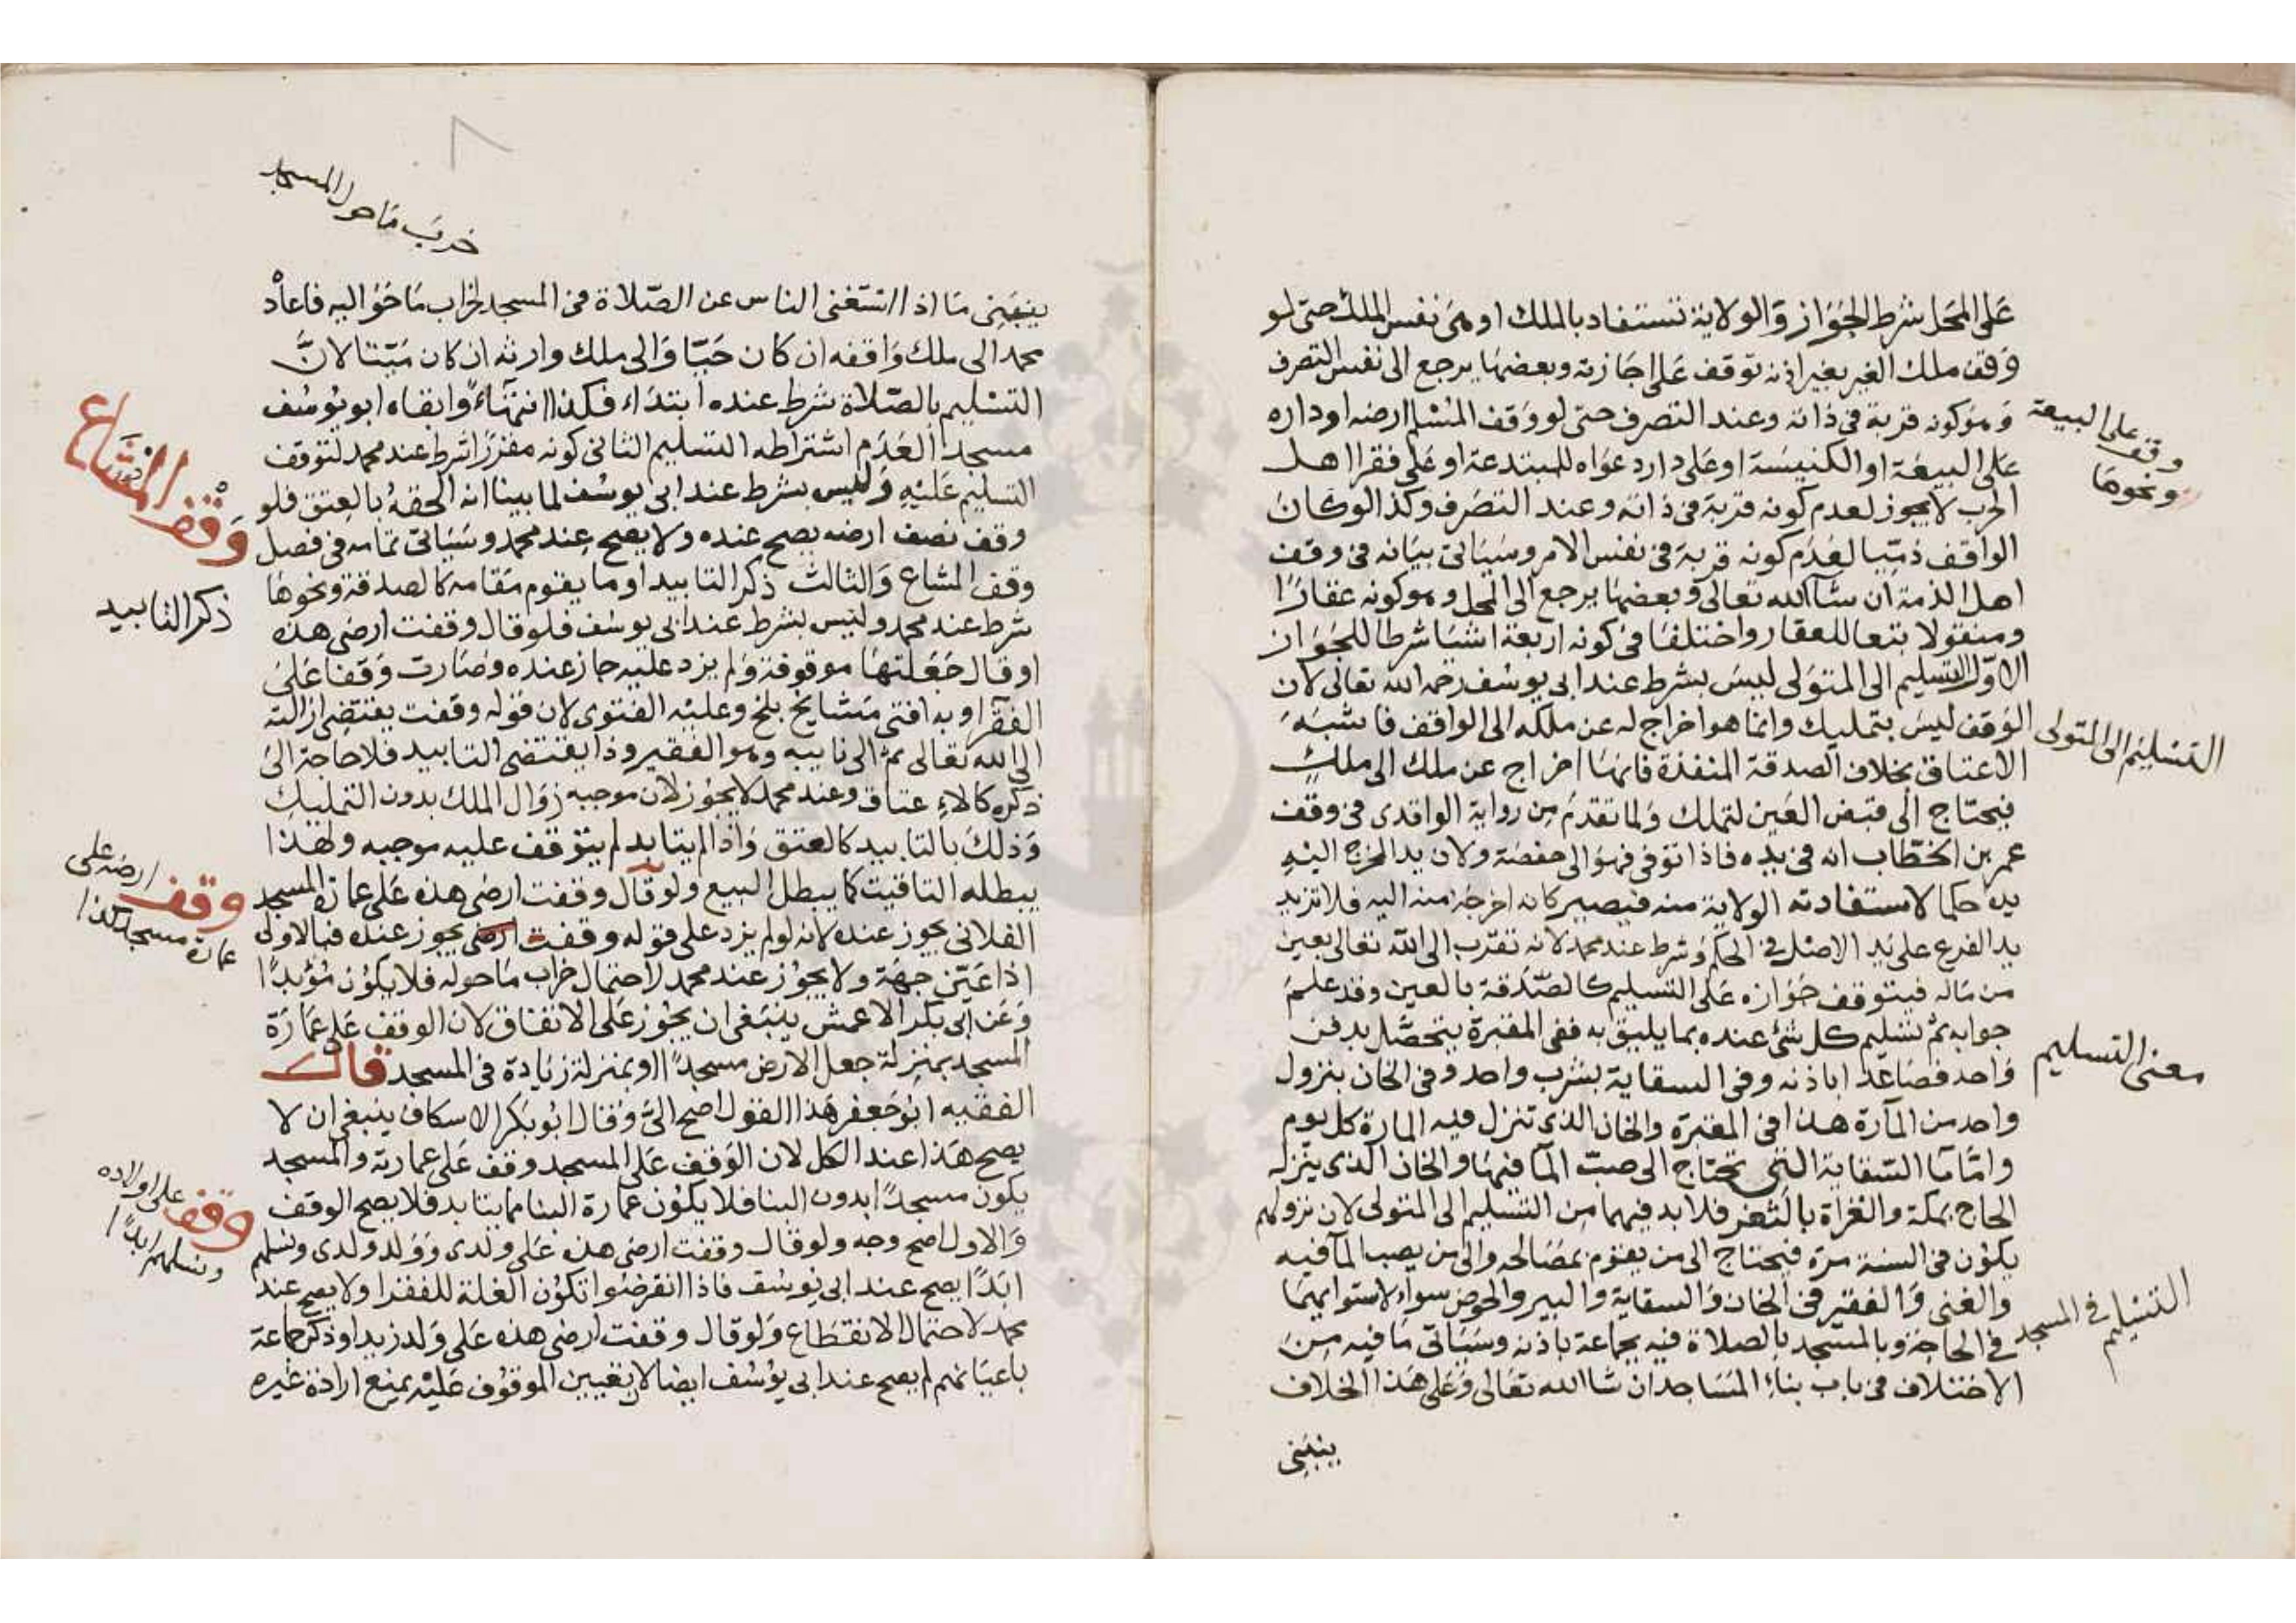 على المحل شرط الجواز والولاية تستفاد بالملك او هى نفس الملك حتى لو
وقف ملك الغير بغير اذنه توقف على اجازته وبعضها يرجع الى نفس التصرف
وهو كونه قربة فى ذاته وعند التصرف حتى لو وقف المسلم ارضه او داره
على البيعة او الكنيسة او على دار دعواه للمبتدعة او على فقرا اهل
الحرب لا يجوز لعدم كونه قربة فى ذاته وعند التصرف وكذا لو كان
الواقف ذميا لعدم كونه قربة فى نفس الامر وسياتى بيانه فى وقف
اهل الذمة ان شا الله تعالى وبعضها يرجع الى المحل وهو كونه عقارا
ومنقولا تبعا للعقار واختلفا فى كونه اربعة اشيا شرطا للجواز
الاول التسليم الى المتولى ليس بشرط عند ابى يوسف رحمه الله تعالى لان
الوقف ليس بتمليك وانما هو اخراج له عن ملكه الى الواقف فاشبه
الاعتاق بخلاف الصدقة المنفذة فانها اخراج عن ملك الى ملك
فيحتاج الى قبض العين لتملك ولما تقدم من رواية الواقدى فى وقف
عمر بن الخطاب انه فى يده فاذا توفى فهو الى حفصة ولان يد المخرج اليه
يده حكما لاستفادته الولاية منه فيصير كانه اخرجه منه اليه فلا تزيد
يد الفرع على يد الاصل فى الحكم وشرط عند محمد لانه تقرب الى الله تعالى بعين
من ماله فيتوقف جوازه على التسليم كالصدقة بالعين وقد علم
جوابه ثم تسليم كل شئ عنده بما يليق به ففى المقبرة يتحصل بدفن
واحد فصاعدا باذنه وفى السقاية بشرب واحد وفى الخان بنزول
واحد من المآرة هذا فى المقبرة والخان الذى تنزل فيه المارة كل يوم
واما السقاية التى تحتاج الى صب المآ فيها والخان الذى ينزله
الحاج بمكة والغزاة بالثغر فلا بد فيهما من التسليم الى المتولى لان نزولهم
يكون فى السنة مرة فيحتاج الى من يقوم بمصالحه والى من يصب المآ فيه
والغنى والفقير فى الخان والسقاية والبير والحوض سواء لاستوايهما
فى الحاجة وبالمسجد بالصلاة فيه بجماعة باذنه وسياتى ما فيه من
الاختلاف فى باب بناء المساجد ان شا الله تعالى وعلى هذا الخلاف
ينبنى
وقف على البيعة
ونحوها
التسليم الى المتولى
معنى التسليم
التسليم فى المسجد
خرب ما حول المسجد
ينبنى ما اذا استغنى الناس عن الصلاة فى المسجد لخراب ما حواليه فاعاده
محمد الى ملك واقفه ان كان حيا والى ملك وارثه ان كان ميتا لان
التسليم بالصلاة شرط عنده ابتداء فكذا انتهاء وابقاه ابو يوسف
مسجدا لعدم اشتراطه التسليم الثانى كونه مفرزا شرط عند محمد لتوقف
التسليم عليه وليس بشرط عند ابى يوسف لما بينا انه الحقه بالعتق فلو
وقف نصف ارضه يصح عنده ولا يصح عند محمد وسياتى تمامه فى فصل
وقف المشاع والثالث ذكر التابيد او ما يقوم مقامه كالصدقة ونحوها
شرط عند محمد وليس بشرط عند ابى يوسف فلو قال وقفت ارضى هذه
او قال جعلتها موقوفة ولم يزد عليه جاز عنده وصارت وقفا على
الفقرا وبه افتى مشايخ بلخ وعليه الفتوى لان قوله وقفت يقتضى ازالته
الى الله تعالى ثم الى نايبه وهو الفقير وذا يقتضى التابيد فلا حاجة الى
ذكره كالاعتاق وعند محمد لا يجوز لان موجبه زوال الملك بدون التمليك
وذلك بالتابيد كالعتق واذا لم يتابد لم يتوقف عليه موجبه ولهذا
يبطله التاقيت كما يبطل البيع ولو قال وقفت ارضى هذه على عمارة المسجد
الفلانى يجوز عنده لانه لو لم يزد على قوله وقفت ارضى يجوز عنده فبالاولى
اذا عين جهة ولا يجوز عند محمد لاحتمال خراب ما حوله فلا يكون مؤبدا
وعن ابى بكر الاعمش ينبغى ان يجوز على الاتفاق لان الوقف على عمارة
المسجد بمنزلة جعل الارض مسجدا او بمنزلة زيادة فى المسجد قال
الفقيه ابو جعفر هذا القول اصح الى وقال ابو بكر الاسكاف ينبغى ان لا
يصح هذا عند الكل لان الوقف على المسجد وقف على عمارته والمسجد
يكون مسجدا بدون البنا فلا يكون عمارة البنا مما يتابد فلا يصح الوقف
والاول اصح وجه ولو قال وقفت ارضى هذه على ولدى وولد ولدى ونسلهم
ابدا يصح عند ابى يوسف فاذا انقرضوا تكون الغلة للفقرا ولا يصح عند
محمد لاحتمال الانقطاع ولو قال وقفت ارضى هذه على ولد زيد او ذكر جماعة
باعيانهم لم يصح عند ابى يوسف ايضا لان تعيين الموقوف عليه يمنع ارادة غيره
وقف المشاع
ذكر التابيد
وقف ارضه على
عمارة مسجد كذا
وقف على اولاده
ونسلهم ابدا